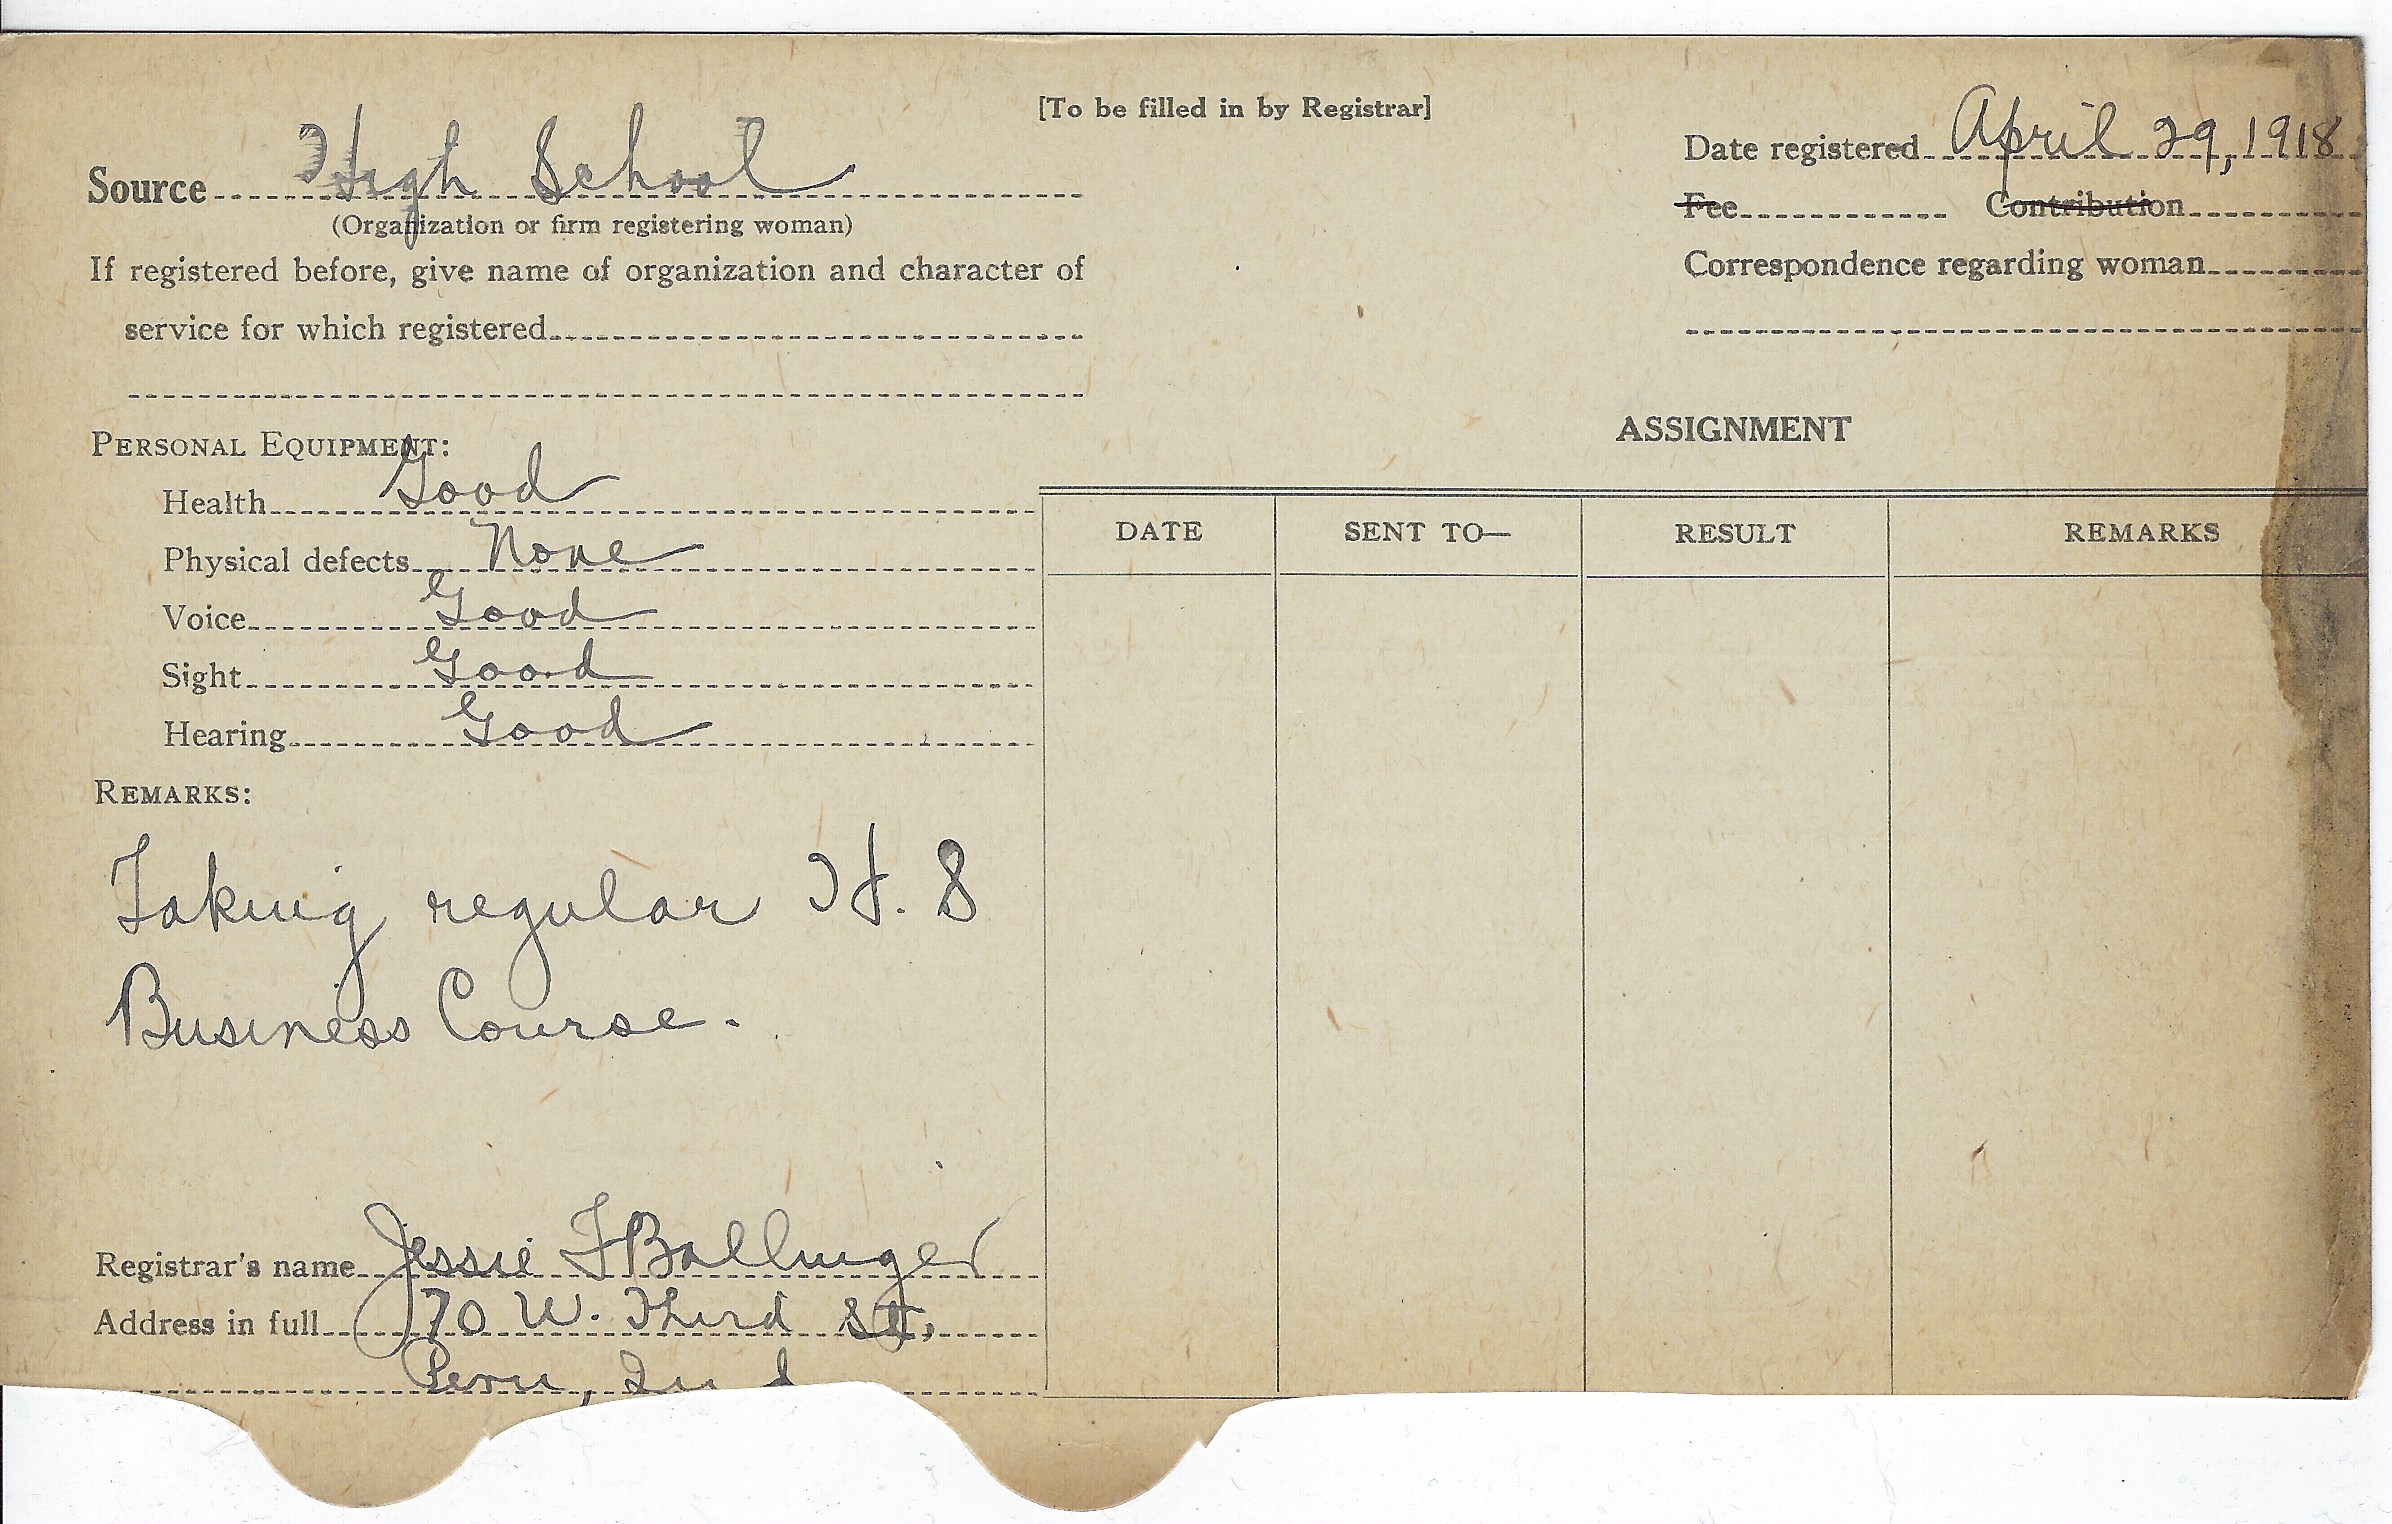 [To be filled in by Registrar]
Source High School
(Organization or firm registering woman)
If registered before, give name of organization and character of
service for which registered
Date registered April 29, 1918
Fee Contribution
Correspondence regarding woman
PERSONAL EQUIPMENT:
Health Good
Physical defects None
Voice Good
Sight Good
Hearing Good
REMARKS:
Taking regular H. S
Business Course.
Registrar's name Jessie F Ballinger
Address in full 70 W. Third St,
Peru, Ind
ASSIGNMENT
DATE SENT TO— RESULT REMARKS